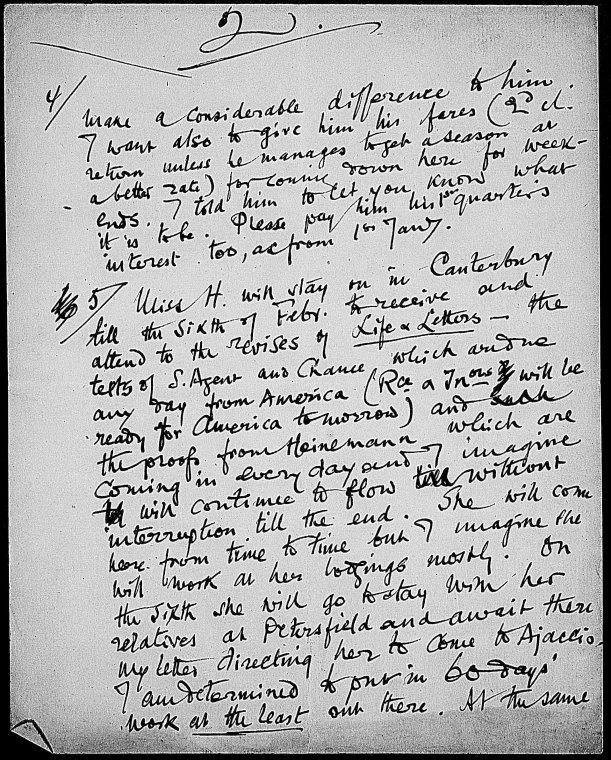 2.
4/ make a considerable difference to him.
I want also to give him his fares (2d cl.
return unless he manages to get a season at
a better rate) for coming down here for week-
ends. I told him to let you know what
it is to be. Please pay him his 1st quarter's
interest too, as from 1st Jany.
5/ Miss H. will stay on in Canterbury
till the sixth of Febr. to receive and
attend to the revises of Life & Letters — the
texts of S. Agent and Chance which are due
any day from America (Rce & Inons will be
ready for America to-morrow) and
the proofs from Heinemann which are
coming in every day and I imagine
will continue to flow without
interruption till the end. She will come
here from time to time but I imagine she
will work at her lodgings mostly. On
the sixth she will go to stay with her
relatives at Petersfield and await there
my letter directing her to come to Ajaccio.
I am determined to put in 60 days'
work at the least out there. At the same